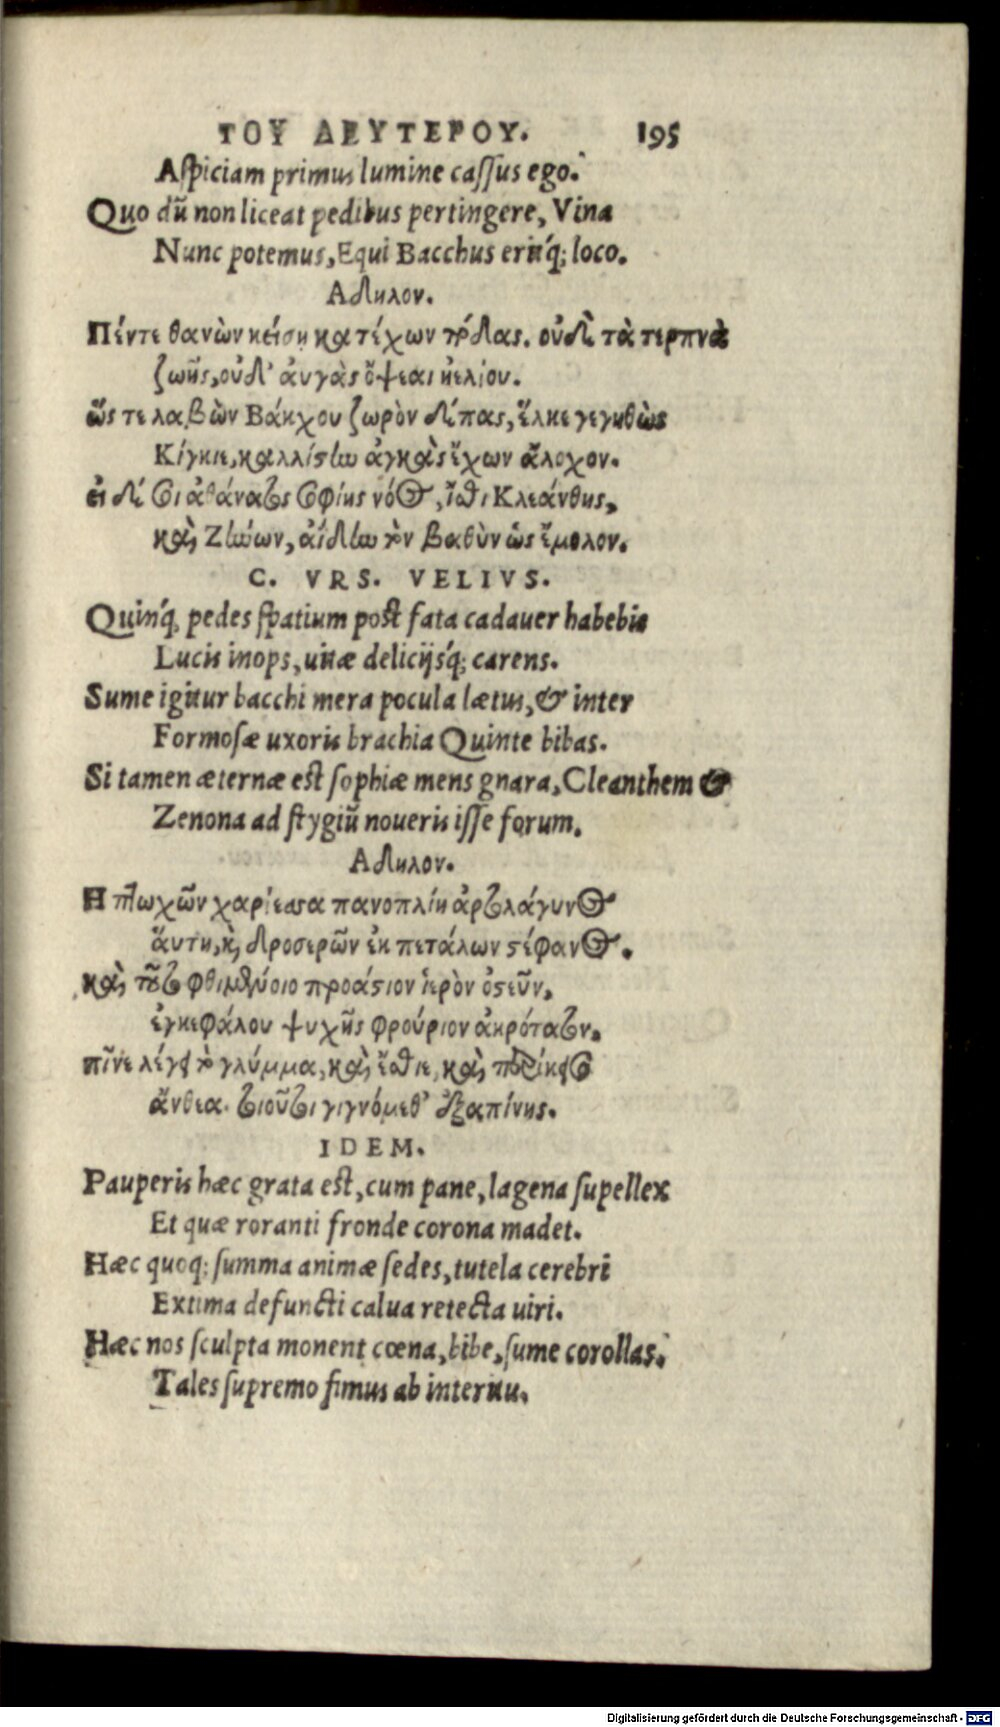 ΤΟΥ ΔΕΥΤΕΡΟΥ. 195
Aſpiciam primus lumine caſſus ego.
Quo dũ non liceat pedibus pertingere, Vina
Nunc potemus, Equi Bacchus eritq́; loco.
Αδηλον.
Πέντε θανὼν κείση κατέχων πόδας. οὐδὲ τὰ τερπνὰ
ζωῆς, οὐδ' ἀυγὰς ὄψεαι ἠελίου.
ὥστε λαβὼν Βάκχου ζωρὸν δέπας, ἕλκε γεγηθὼς
Κίγκιε, καλλίστην ἀγκὰς ἔχων ἄλοχον.
εἰ δέ σοι ἀθάνατος σοφίης νόος, ἴσθι Κλεάνθης,
καὶ Ζήνων, ἀΐδην τὸν βαθὺν ὡς ἔμολον.
C. VRS. VELIVS.
Quinq́; pedes ſpatium poſt fata cadauer habebis
Lucis inops, uitæ delicijsq́; carens.
Sume igitur bacchi mera pocula lætus, & inter
Formoſæ uxoris brachia Quinte bibas.
Si tamen æternæ eſt ſophiæ mens gnara, Cleanthem &
Zenona ad ſtygiũ noueris iſſe forum.
Αδηλον.
Η πτωχῶν χαρίεσσα πανοπλίη ἀρτολάγυνος
ἅυτη, καὶ δροσερῶν ἐκ πετάλων στέφανος.
καὶ τοῦτο φθιμένοιο προάστιον ἱερὸν ὀστεῦν,
ἐγκεφάλου ψυχῆς φρούριον ἀκρότατον.
πῖνε λέγει τὸ γλύμμα, καὶ ἔσθιε, καὶ περίκεισο
ἄνθεα. τοιοῦτοι γιγνόμεθ' ἐξαπίνης.
IDEM.
Pauperis hæc grata eſt, cum pane, lagena ſupellex
Et quæ roranti fronde corona madet.
Hæc quoq; ſumma animæ ſedes, tutela cerebri
Extima defuncti calua retecta uiri.
Hæc nos ſculpta monent cœna, bibe, ſume corollas.
Tales ſupremo ſimus ab interitu.
Digitalisierung gefördert durch die Deutsche Forschungsgemeinschaft - DFG